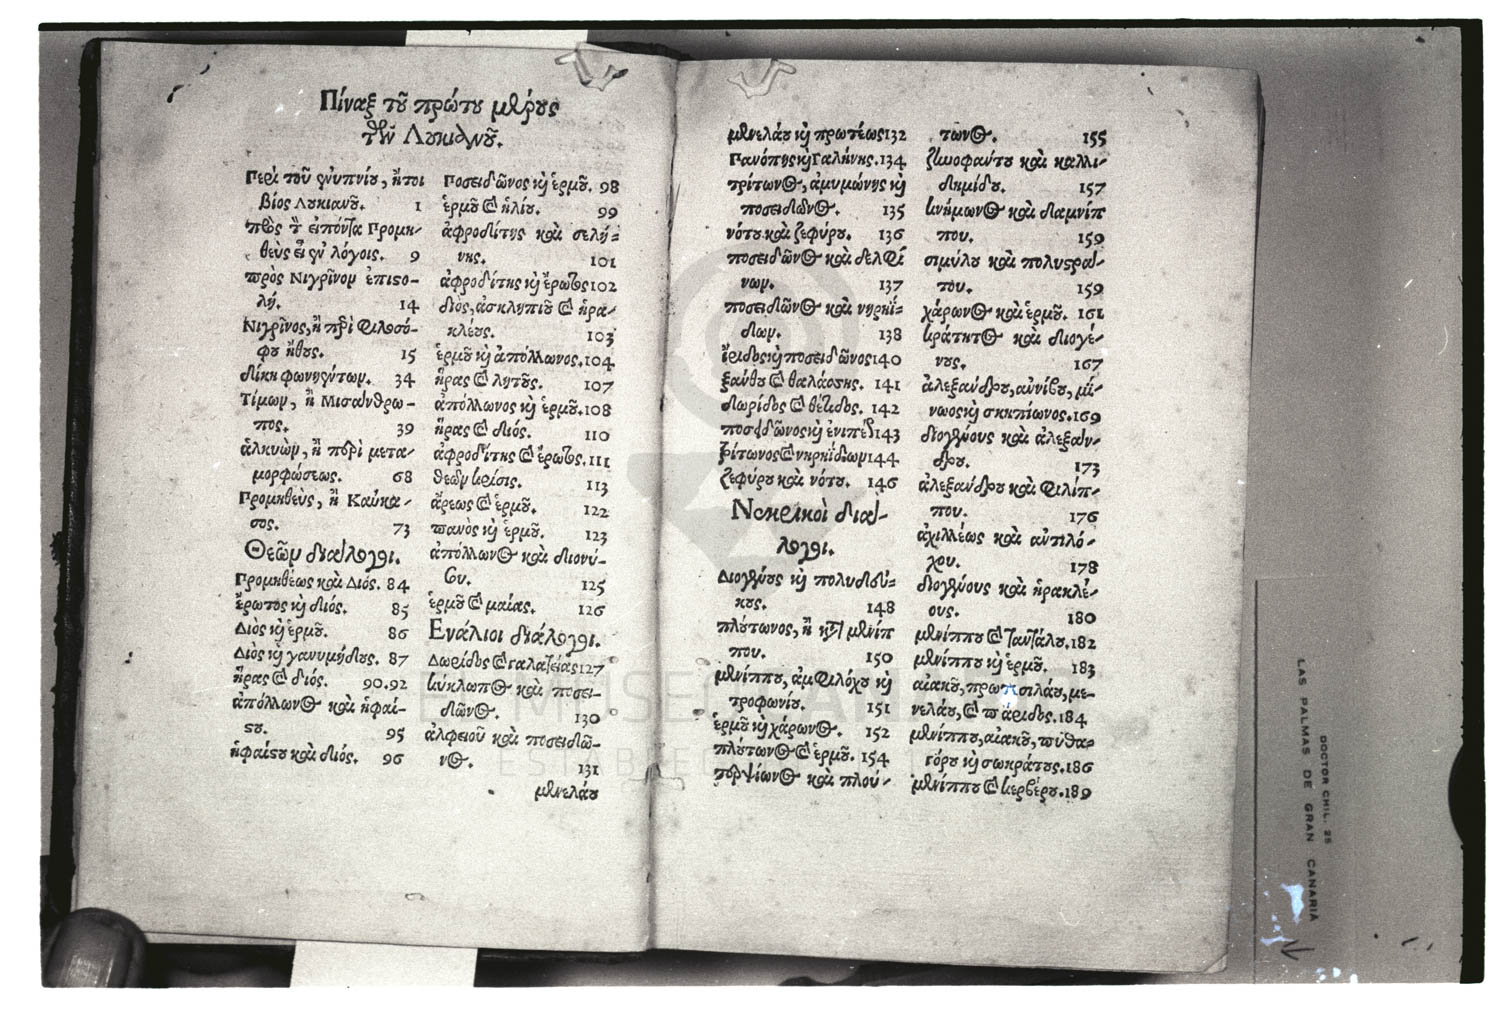 Πίναξ τοῦ πρώτου μέρους
τῶν Λουκιανοῦ.
Περὶ τοῦ ἐνυπνίου, ἤτοι
βίος Λουκιανοῦ. 1
πρὸς τὸν εἰπόντα Προμη-
θεὺς εἶ ἐν λόγοις. 9
πρὸς Νιγρῖνον ἐπιστο-
λή. 14
Νιγρῖνος, ἢ περὶ φιλοσό-
φου ἤθους. 15
δίκη φωνηέντων. 34
Τίμων, ἢ Μισάνθρω-
πος. 39
ἁλκυὼν, ἢ περὶ μετα-
μορφώσεως. 68
Προμηθεὺς, ἢ Καύκα-
σος. 73
Θεῶν διάλογοι.
Προμηθέως καὶ Διός. 84
ἔρωτος καὶ διός. 85
Διὸς καὶ ἑρμοῦ. 86
Διὸς καὶ γανυμήδους. 87
ἥρας καὶ διός. 90.92
ἀπόλλωνος καὶ ἡφαί-
στου. 95
ἡφαίστου καὶ διός. 96
Ποσειδῶνος καὶ ἑρμοῦ. 98
ἑρμοῦ καὶ ἡλίου. 99
ἀφροδίτης καὶ σελή-
νης. 101
ἀφροδίτης καὶ ἔρωτος 102
διὸς, ἀσκληπιοῦ καὶ ἡρα-
κλέους. 103
ἑρμοῦ καὶ ἀπόλλωνος. 104
ἥρας καὶ λητοῦς. 107
ἀπόλλωνος καὶ ἑρμοῦ. 108
ἥρας καὶ διός. 110
ἀφροδίτης καὶ ἔρωτος. 111
θεῶν κρίσις. 113
ἄρεως καὶ ἑρμοῦ. 122
πανὸς καὶ ἑρμοῦ. 123
ἀπόλλωνος καὶ διονύ-
σου. 125
ἑρμοῦ καὶ μαίας. 126
Ενάλιοι διάλογοι.
Δωρίδος καὶ γαλατείας 127
κύκλωπος καὶ ποσει-
δῶνος. 130
ἀλφειοῦ καὶ ποσειδῶ-
νος. 131
μενελάου
μενελάου καὶ πρωτέως 132
Πανόπης καὶ Γαλήνης. 134
τρίτωνος, ἀμυμώνης καὶ
ποσειδῶνος. 135
νότου καὶ ζεφύρου. 136
ποσειδῶνος καὶ δελφί
νων. 137
ποσειδῶνος καὶ νηρηΐ-
δων. 138
ἴριδος καὶ ποσειδῶνος 140
ξάνθου καὶ θαλάσσης. 141
δωρίδος καὶ θέτιδος. 142
ποσειδῶνος καὶ ἐνιπέως 143
τρίτωνος καὶ νηρηΐδων 144
ζεφύρου καὶ νότου. 146
Νεκρικοὶ διάλ-
λογοι.
Διογένους καὶ πολυδεύ-
κους. 148
πλούτωνος, ἢ κατὰ μενίπ
που. 150
μενίππου, ἀμφιλόχου καὶ
τροφωνίου. 151
ἑρμοῦ καὶ χάρωνος. 152
πλούτωνος καὶ ἑρμοῦ. 154
τερψίωνος καὶ πλού-
τωνος. 155
ζηνοφάντου καὶ καλλι-
δημίδου. 157
κνήμωνος καὶ δαμνίπ
που. 159
σιμύλου καὶ πολυστρά-
του. 159
χάρωνος καὶ ἑρμοῦ. 161
κράτητος καὶ διογέ-
νους. 167
ἀλεξάνδρου, ἀννίβου, μί-
νωος καὶ σκηπίωνος. 169
διογένους καὶ ἀλεξάν-
δρου. 173
ἀλεξάνδρου καὶ φιλίπ-
που. 176
ἀχιλλέως καὶ ἀντιλό-
χου. 178
διογένους καὶ ἡρακλέ-
ους. 180
μενίππου καὶ ταντάλου. 182
μενίππου καὶ ἑρμοῦ. 183
αἰακοῦ, πρωτεσιλάου, με-
νελάου, καὶ πάριδος. 184
μενίππου, αἰακοῦ, πυθα-
γόρου καὶ σωκράτους. 186
μενίππου καὶ κερβέρου. 189
EL MUSEO CANARIO
DOCTOR CHIL, 25
LAS PALMAS DE GRAN CANARIA